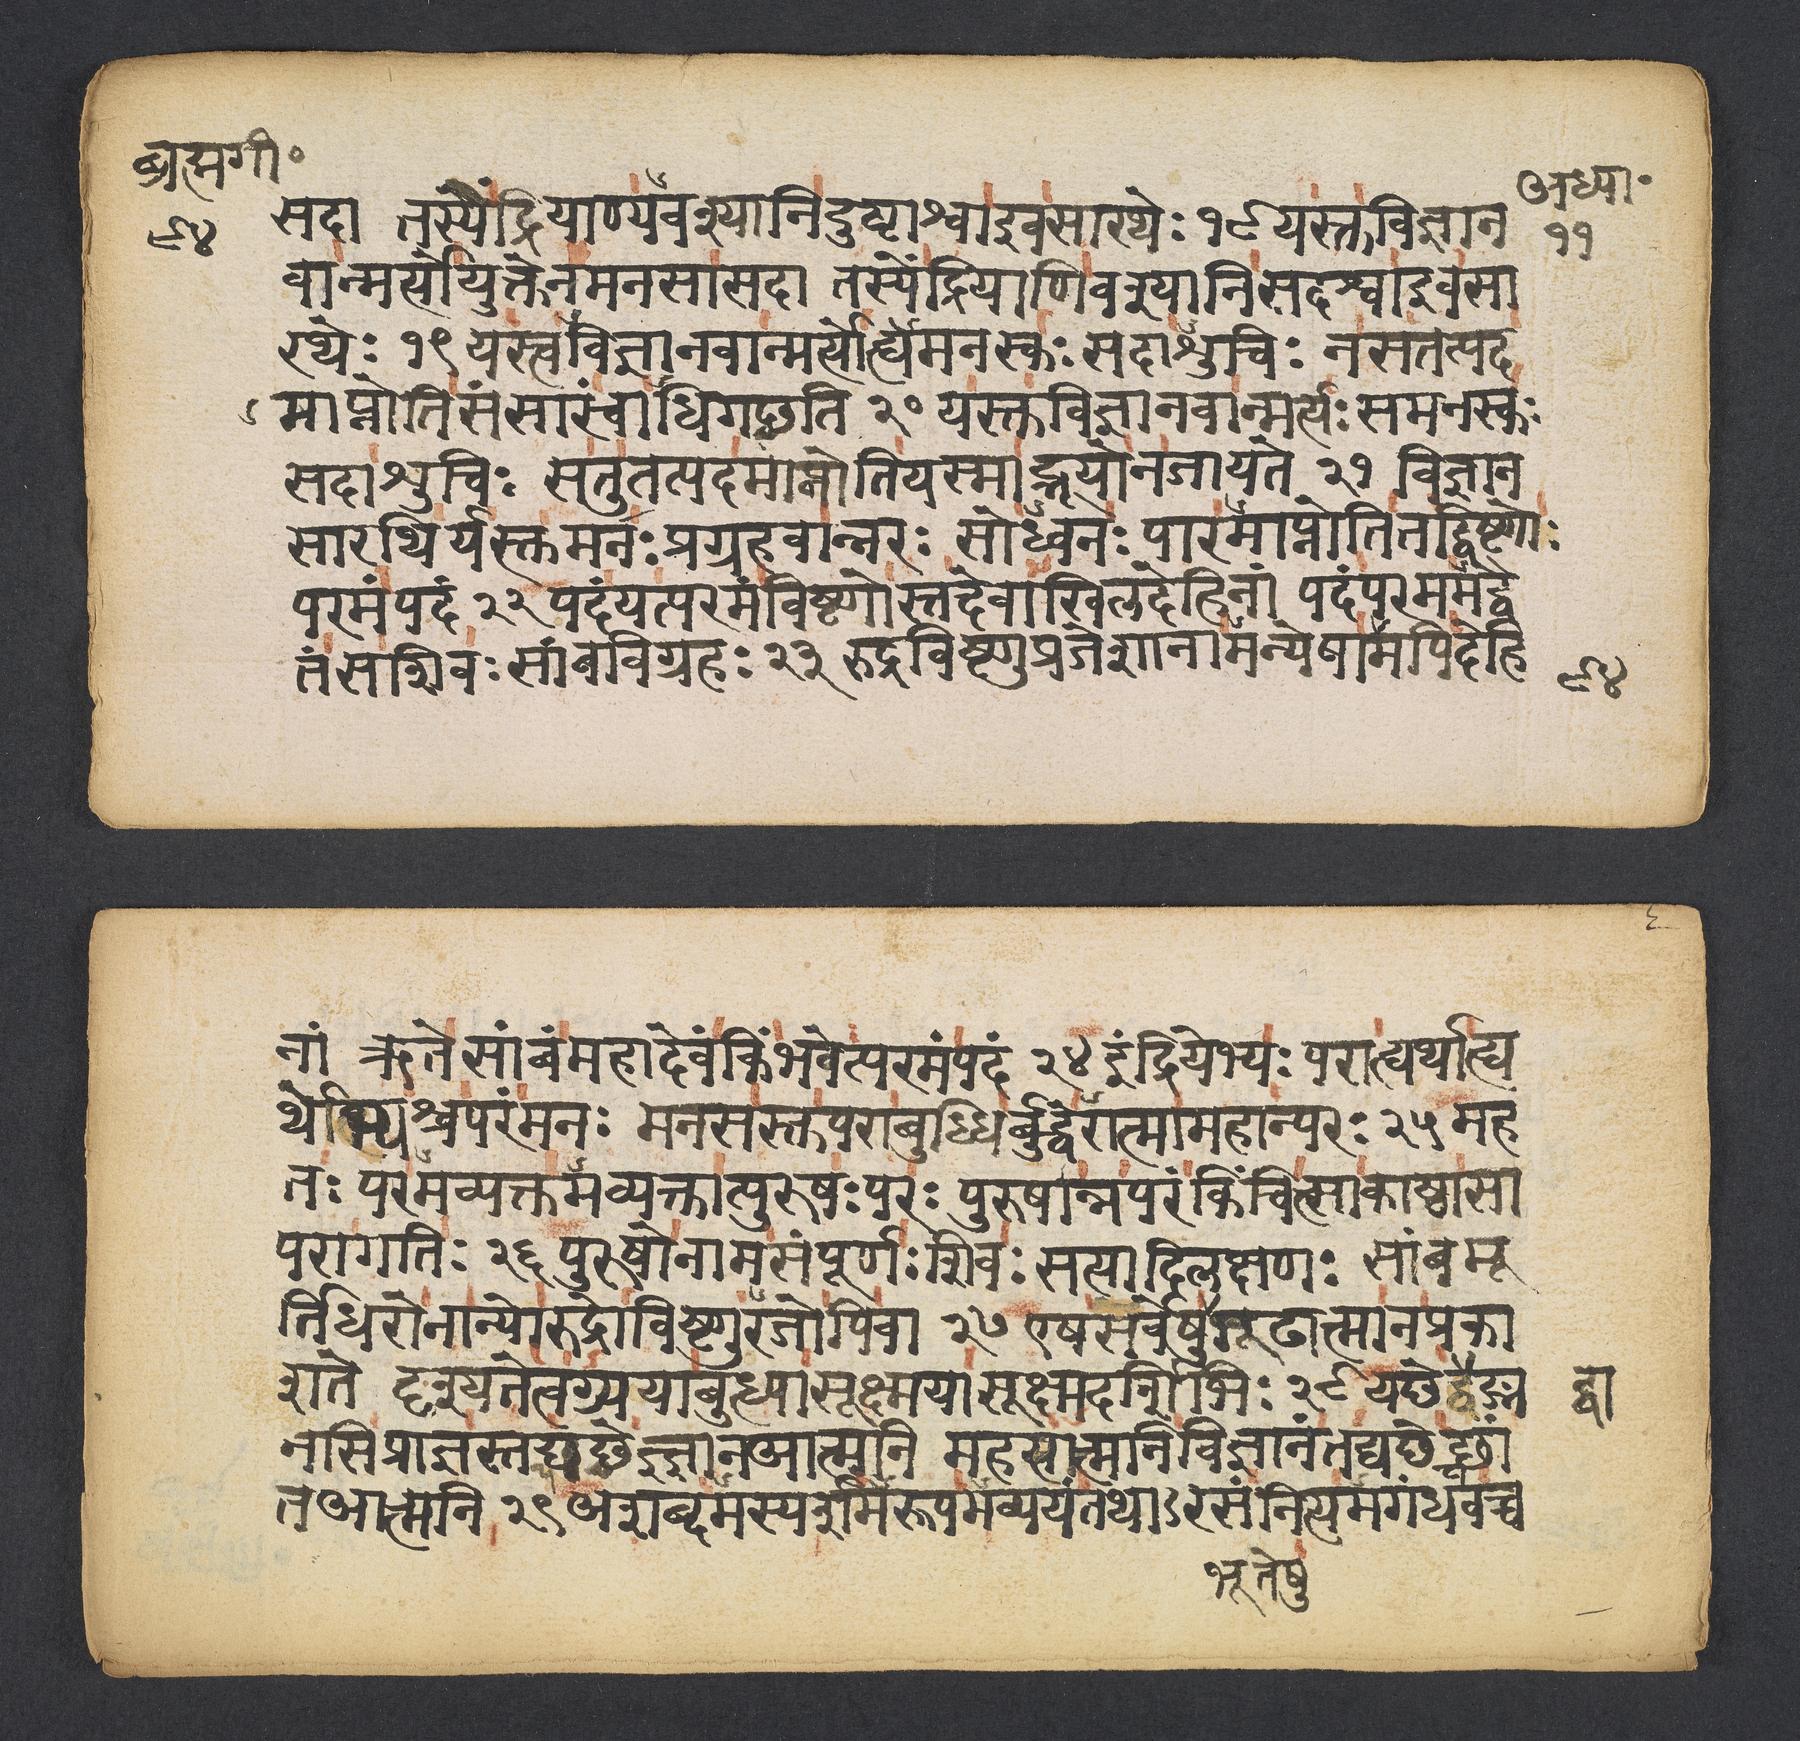 ब्रह्मगी॰
अध्या॰
८४
११
सदा तस्येंद्रियाण्यवश्यानिदुष्टाश्वाइवसारथेः १८ यस्तुविज्ञान
वान्मर्त्योयुक्तेनमनसासदा तस्येंद्रियाणिवश्यानिसदश्वाइवसा
रथेः १९ यस्त्वविज्ञानवान्मर्त्योह्यमनस्कः सदाशुचिः नसतत्पद
माप्नोतिसंसारंस्वाधिगछति २० यस्तुविज्ञानवान्मर्त्यः समनस्कः
सदाशुचिः सतुतत्पदमाप्नोतियस्माद्भूयोनजायते २१ विज्ञान
सारथिर्यस्तुमनः प्रग्रहवान्नरः सोध्वनः पारमाप्नोतितद्विष्णोः
परमंपदं २२ पदंयत्परमंविष्णोस्तदेवाखिलदेहिनां पदंपरममद्वै
तंसशिवः सांबविग्रहः २३ रुद्रविष्णुप्रजेशानामन्येषामपिदेहि
८४
नां ऋतेसांबंमहादेवंकिंभवेत्परमंपदं २४ इंद्रियेभ्यः पराह्यर्थाह्य
र्थेभ्यश्चपरंमनः मनसस्तुपराबुध्धिर्बुद्धेरात्मामहान्परः २५ मह
तः परमव्यक्तमव्यक्तात्पुरुषः परः पुरुषान्नपरंकिंचित्साकाष्ठासा
परागतिः २६ पुरुषोनामसंपूर्णः शिवः सत्यादिलक्षणः सांबमू
र्तिधरोनान्योरुद्रोविष्णुरजोपिवा २७ एषसर्वेषुगूढात्मानप्रका
शते दृश्यतेत्वग्र्ययाबुध्यासूक्ष्मयासूक्ष्मदर्शिभिः २८ यछेद्वाङ्म
द्वा
नसिप्राज्ञस्तद्यछेज्ज्ञानआत्मनि महत्यात्मनिविज्ञानंतद्यछेच्छां
तआत्मनि २९ अशब्दमस्पर्शमरूपमव्ययंतथाऽरसंनित्यमगंधवच्च
भूतेषु